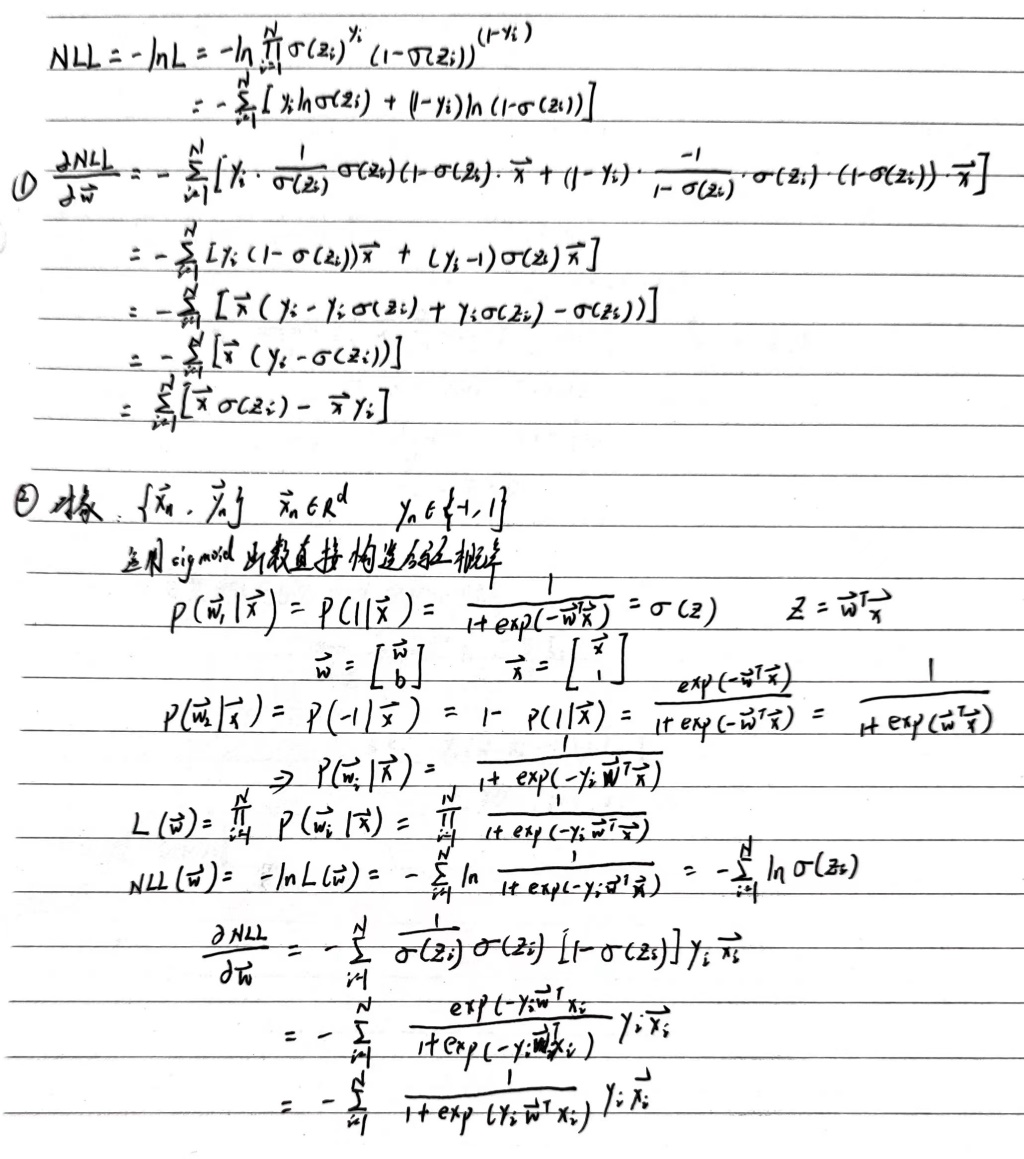 NLL = -lnL = -ln ∏_{i=1}^{N} σ(z_i)^{y_i} (1-σ(z_i))^{(1-y_i)}
= -∑_{i=1}^{N} [y_i lnσ(z_i) + (1-y_i)ln(1-σ(z_i))]
① ∂NLL/∂w⃗ = -∑_{i=1}^{N} [y_i · 1/σ(z_i) σ(z_i)(1-σ(z_i)·x⃗ + (1-y_i)· -1/(1-σ(z_i)) ·σ(z_i)·(1-σ(z_i))·x⃗]
= -∑_{i=1}^{N} [y_i(1-σ(z_i))x⃗ + (y_i-1)σ(z_i)x⃗]
= -∑_{i=1}^{N} [x⃗(y_i - y_iσ(z_i) + y_iσ(z_i) - σ(z_i))]
= -∑_{i=1}^{N} [x⃗(y_i - σ(z_i))]
= ∑_{i=1}^{N} [x⃗σ(z_i) - x⃗y_i]
② 对象: {x⃗_n, y⃗_n} x⃗_n∈R^d y_n∈{-1,1}
运用sigmoid函数直接构造后验概率
P(w⃗_1|x⃗) = P(1|x⃗) = 1/(1+exp(-w⃗^T x⃗)) = σ(z) Z = w⃗^T x⃗
w⃗ = [w⃗ b] x⃗ = [x⃗ 1]
P(w⃗_2|x⃗) = P(-1|x⃗) = 1- P(1|x⃗) = exp(-w⃗^T x⃗)/(1+exp(-w⃗^T x⃗)) = 1/(1+exp(w⃗^T x⃗))
⇒ P(w⃗_i|x⃗) = 1/(1+exp(-y_i w⃗^T x⃗))
L(w⃗) = ∏_{i=1}^{N} P(w⃗_i|x⃗) = ∏_{i=1}^{N} 1/(1+exp(-y_i w⃗^T x⃗))
NLL(w⃗) = -lnL(w⃗) = -∑_{i=1}^{N} ln 1/(1+exp(-y_i w⃗^T x⃗)) = -∑_{i=1}^{N} lnσ(z_i)
∂NLL/∂w⃗ = -∑_{i=1}^{N} 1/σ(z_i) σ(z_i)[1-σ(z_i)]y_i x⃗_i
= -∑_{i=1}^{N} exp(-y_i w⃗^T x_i/(1+exp(-y_i w⃗^T x_i)) y_i x⃗_i
= -∑_{i=1}^{N} 1/(1+exp(y_i w⃗^T x_i)) y_i x⃗_i